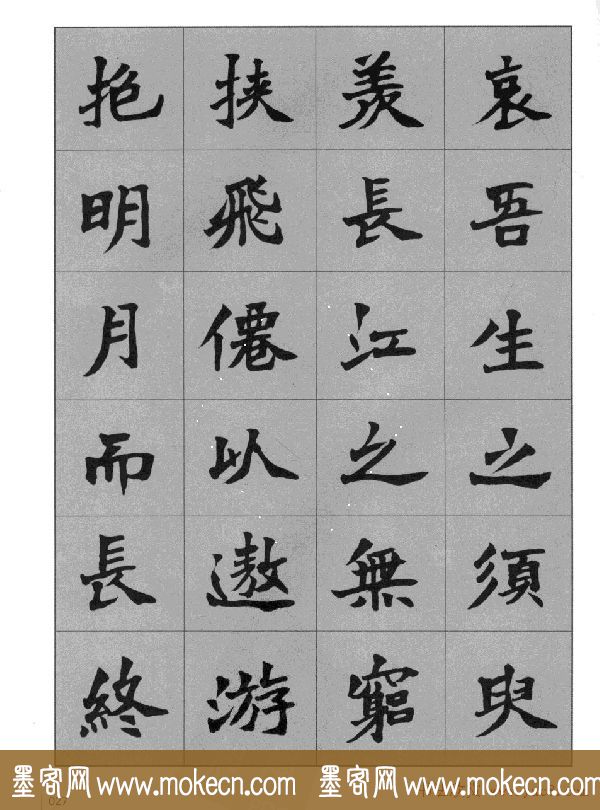 哀吾生之須臾
羨長江之無窮
挟飛僊以遨游
抱明月而長終
墨客网 www.mokecn.com 墨客网 www.mokecn.com
027